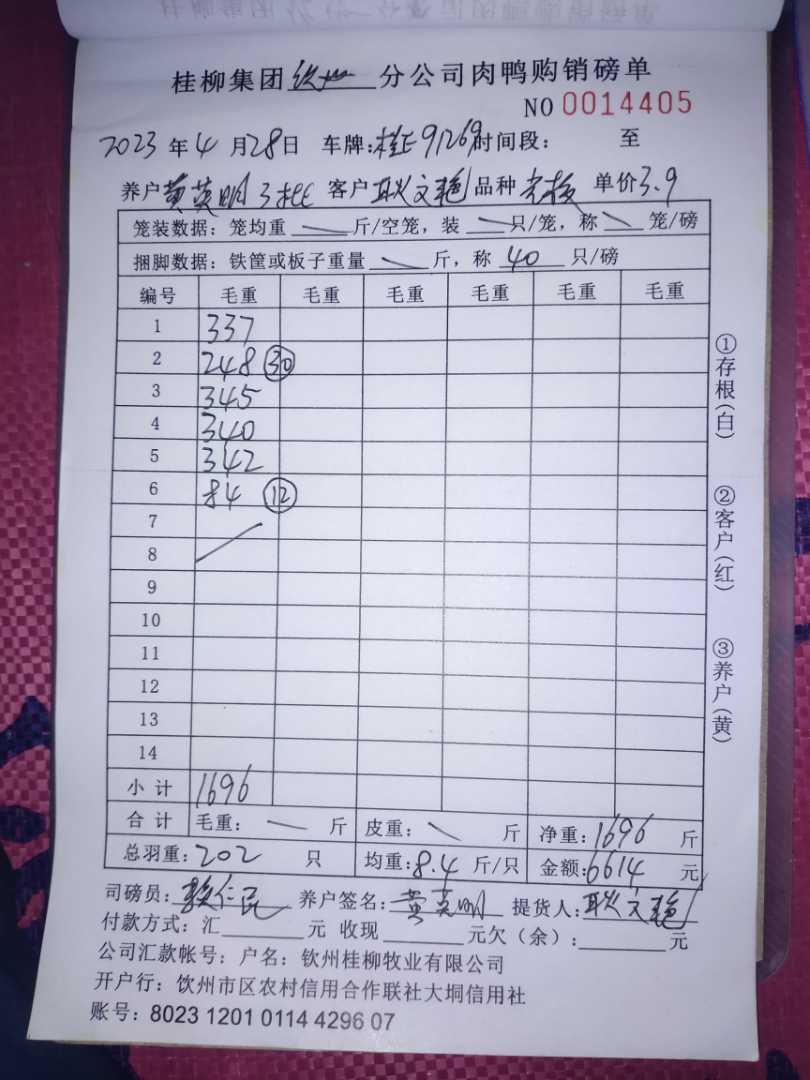 桂柳集团 钦州 分公司肉鸭购销磅单
NO 0014405
2023 年 4 月 28 日 车牌:桂E91269 时间段: 至
养户 黄英明 3批 客户 耿文艳 品种 单价 3.9
笼装数据:笼均重 斤/空笼,装 只/笼,称 笼/磅
捆脚数据:铁筐或板子重量 斤,称 40 只/磅
编号 毛重 毛重 毛重 毛重 毛重 毛重
1 337
2 248 ㉚
3 345
4 340
5 342
6 84 ⑫
7
8
9
10
11
12
13
14
小计 1696
合计 毛重: 斤 皮重: 斤 净重:1696 斤
总羽重:202 只 均重:8.4 斤/只 金额:6614 元
司磅员: 养户签名:黄英明 提货人:耿文艳
付款方式:汇 元 收现 元欠(余): 元
公司汇款帐号:户名:钦州桂柳牧业有限公司
开户行:饮州市区农村信用合作联社大垌信用社
账号:8023 1201 0114 4296 07
①存根(白)
②客户(红)
③养户(黄)